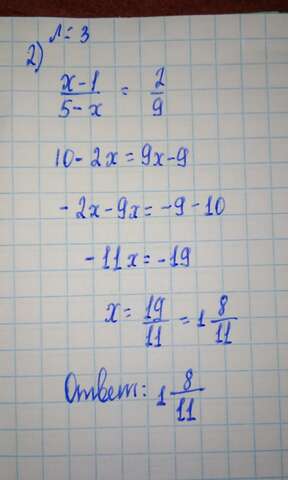 л = 3
2)
x-1/5-x = 2/9
10-2x=9x-9
-2x-9x=-9-10
-11x=-19
x=19/11=1 8/11
Ответ: 1 8/11